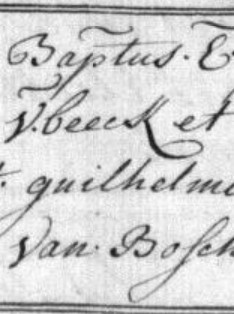 Baptus. E
V.beeck et
t. guilhelm
Van Bosch